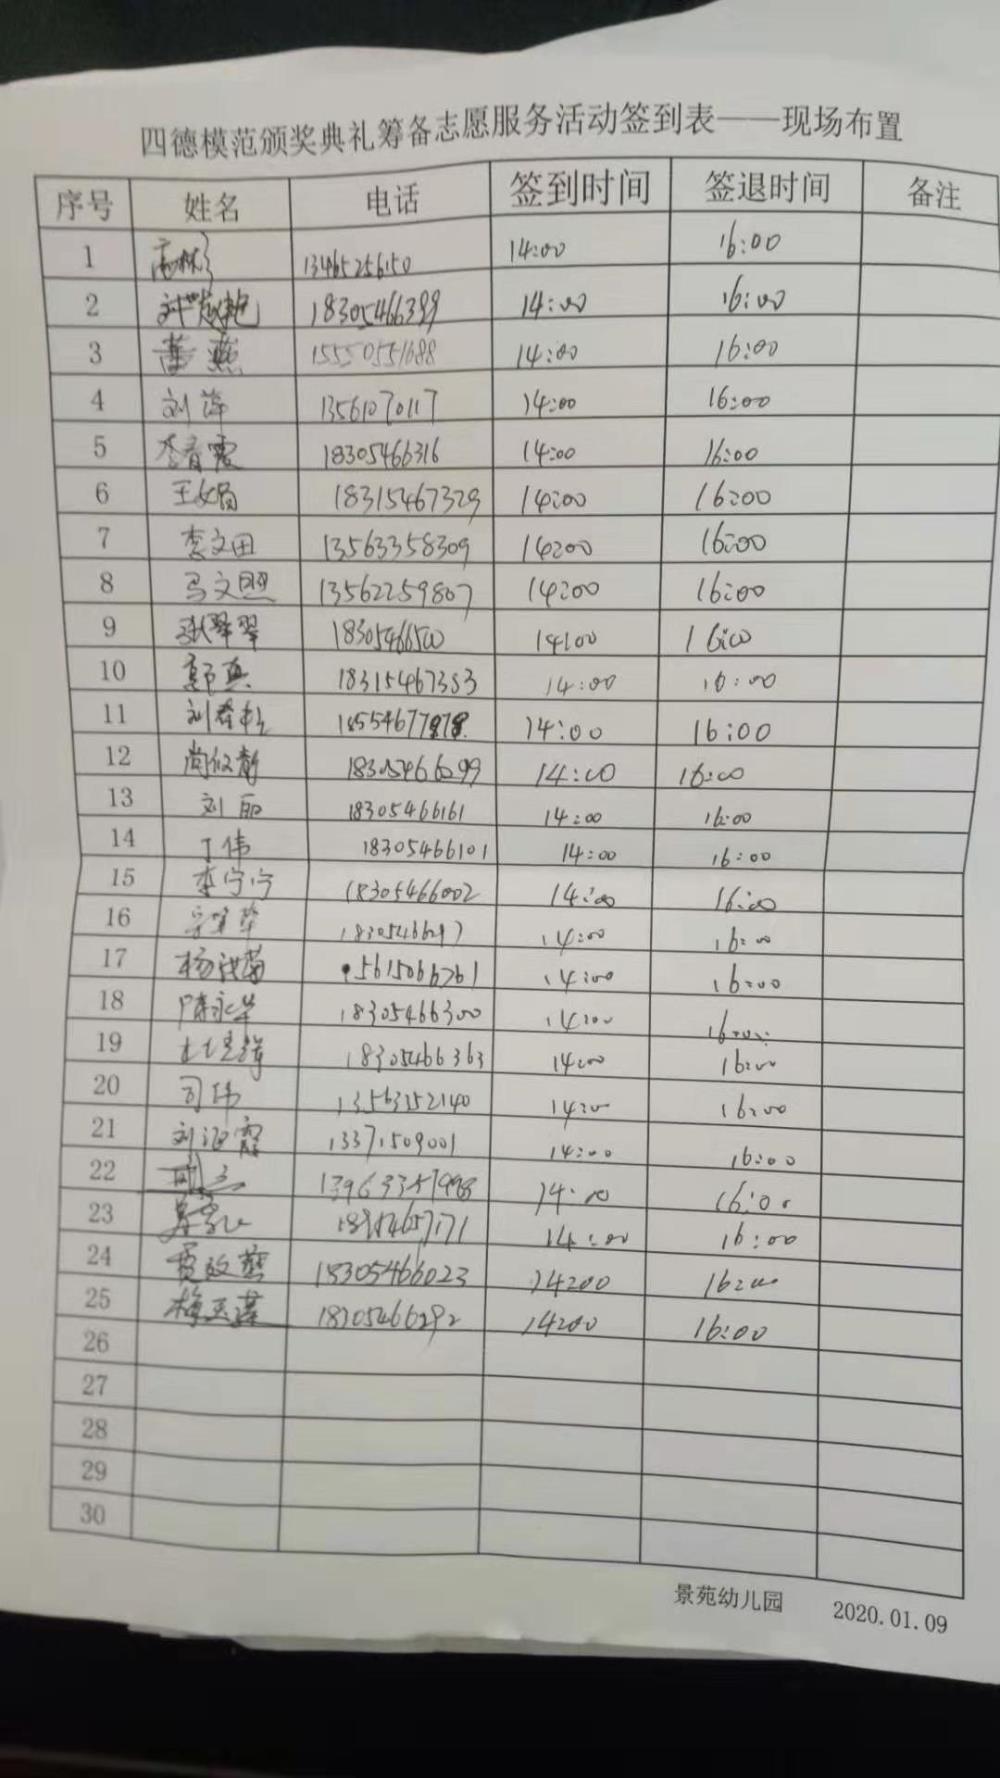 四德模范颁奖典礼筹备志愿服务活动签到表——现场布置
序号 姓名 电话 签到时间 签退时间 备注
1 13465256150 14:00 16:00
2 18305466399 14:00 16:00
3 董燕 15550551688 14:00 16:00
4 刘萍 13561070117 14:00 16:00
5 李春霞 18305466316 14:00 16:00
6 王文娟 18315467329 14:00 16:00
7 李文田 13563358309 14:00 16:00
8 马文照 13562259807 14:00 16:00
9 张翠翠 18305466500 14:00 16:00
10 郭真 18315467383 14:00 16:00
11 刘春松 18554677878 14:00 16:00
12 尚俊静 18305466299 14:00 16:00
13 刘丽 18305466161 14:00 16:00
14 丁伟 18305466101 14:00 16:00
15 李宁宁 18305466002 14:00 16:00
16 14:00 16:00
17 杨洪菊 14:00 16:00
18 陈永华 18305466300 14:00 16:00
19 18305466363 14:00 16:00
20 司伟 13563152140 14:00 16:00
21 13371509001 14:00 16:00
22 14:00 16:00
23 14:00 16:00
24 贾改燕 18305466023 14:00 16:00
25 梅玉莲 18305466292 14:00 16:00
26
27
28
29
30
景苑幼儿园 2020.01.09